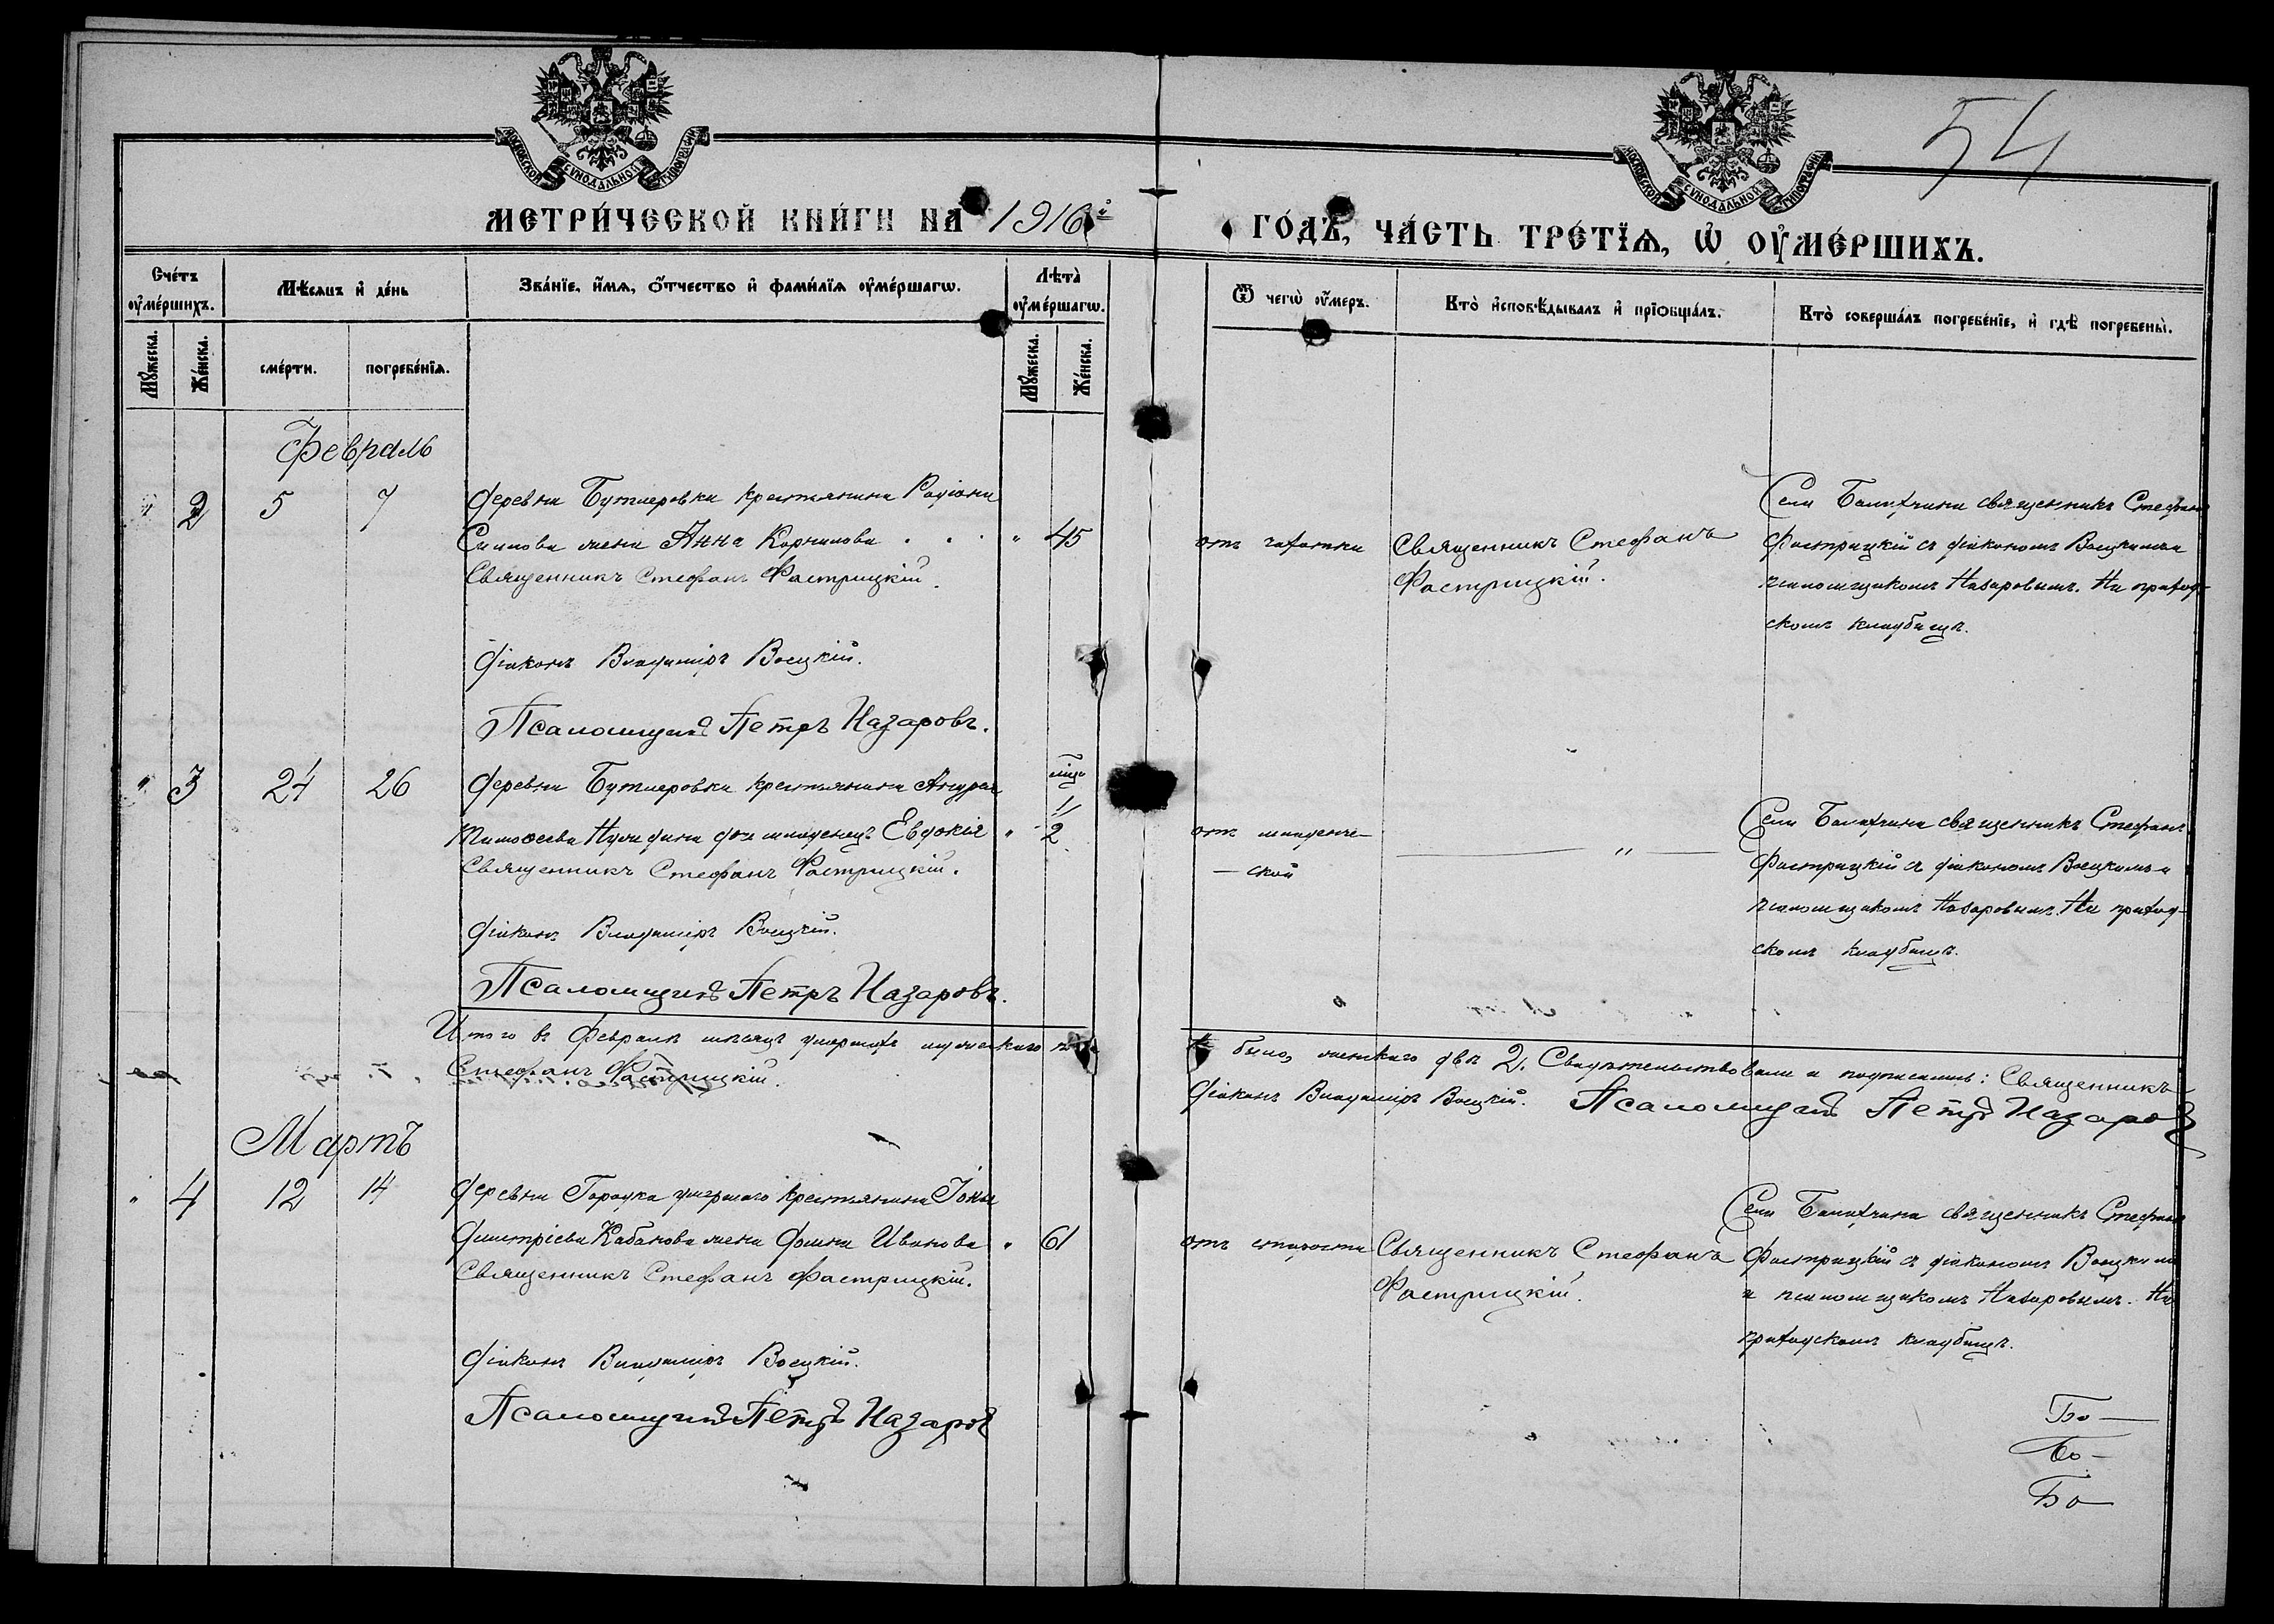 МОСКОВСКОЙ СѴНОДАЛЬНОЙ ТИПОГРАФІИ
МОСКОВСКОЙ СѴНОДАЛЬНОЙ ТИПОГРАФІИ
54
МЕТРИ́ЧЕСКОЙ КНИ́ГИ НА 1916й
ГО́ДЪ, ЧА́СТЬ ТРЕ́ТЇѦ, Ѡ҆ ОУ҆МЕ́РШИХЪ.
Сче́тъ оу҆ме́ршихъ.
Мѣ́сяцъ и҆ де́нь
Зва́нїе, и҆́мя, ѻ҆́тчество и҆ фами́лїя оу҆ме́ршагѡ.
Лѣта̀ оу҆ме́ршагѡ.
Ѿ чегѡ̀ оу҆́меръ.
Кто̀ и҆сповѣ́дывалъ и҆ прїѡбща́лъ.
Кто̀ соверша́лъ погребе́нїе, и҆ гдѣ̀ погребены̀.
Мꙋ́жеска.
Же́нска.
сме́рти.
погребе́нїя.
Мꙋ́жеска.
Же́нска.
Февраль
" 2 5 7 Деревни Бутлеровки крестьянина Родіона
жена Анна Корнилова . . . " 45
Священникъ Стефанъ Фастрицкій.
Діаконъ Владиміръ Воецкій.
Псаломщикъ Петръ Назаровъ.
отъ чахотки
Священникъ Стефанъ
Фастрицкій.
Села священникъ Стефанъ
Фастрицкій съ діакономъ Воецкимъ и
псаломщикомъ Назаровымъ. На приход-
скомъ кладбищѣ.
" 3 24 26 Деревни Бутлеровки крестьянина Андрея
Тимоѳеева дочь младенецъ Евдокія " 2
Священникъ Стефанъ Фастрицкій.
Діаконъ Владиміръ Воецкій.
Псаломщикъ Петръ Назаровъ.
отъ младенче-
-ской
"
Села священникъ Стефанъ
Фастрицкій съ діакономъ Воецкимъ и
псаломщикомъ Назаровымъ. На приход-
скомъ кладбищѣ.
Итого въ Февралѣ мѣсяцѣ умершихъ мужескаго не было, женскаго двѣ 2. Свидѣтельствовали и подписались: Священникъ
Стефанъ Фастрицкій. Діаконъ Владиміръ Воецкій. Псаломщикъ Петръ Назаровъ
Мартъ
" 4 12 14 Деревни Городка умершаго крестьянина Іоны
Димитріева Кабанова жена Домна Иванова " 61
Священникъ Стефанъ Фастрицкій.
Діаконъ Владиміръ Воецкій.
Псаломщикъ Петръ Назаровъ
отъ старости
Священникъ Стефанъ
Фастрицкій.
Села священникъ Стефанъ
Фастрицкій съ діакономъ Воецкимъ
и псаломщикомъ Назаровымъ. На
приходскомъ кладбищѣ.
Бо—
Бо—
Бо—